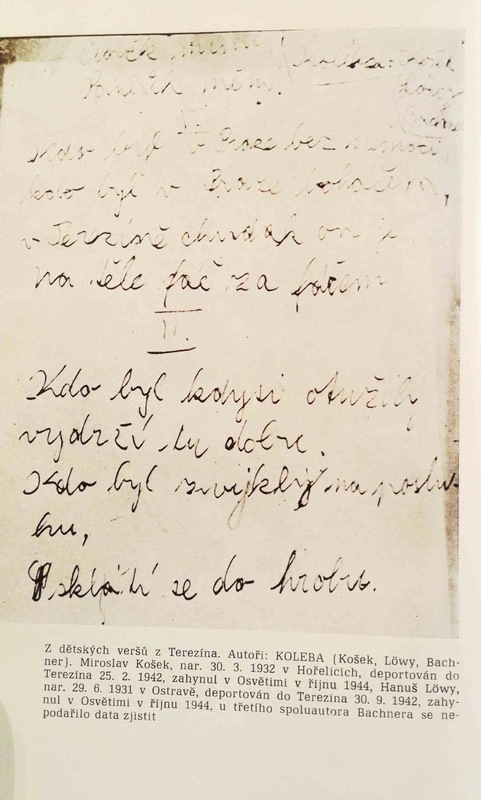 Člověk
Košek
Löwy
měm.
I.
Kdo byl v Praze bez nemoci,
kdo byl v Praze boháčem,
v Terezíně chudák on je,
na těle fač za fačem
II.
Kdo byl kdysi otužilý
vydrží tu dobre.
Kdo byl zvyklý na poslu-
hu,
skládá se do hrobu.
Z dětských veršů z Terezína. Autoři: KOLEBA (Košek, Löwy, Bach-
ner). Miroslav Košek, nar. 30. 3. 1932 v Hořelicích, deportován do
Terezína 25. 2. 1942, zahynul v Osvětimi v říjnu 1944, Hanuš Löwy,
nar. 29. 6. 1931 v Ostravě, deportován do Terezína 30. 9. 1942, zahy-
nul v Osvětimi v říjnu 1944, u třetího spoluautora Bachnera se ne-
podařilo data zjistit